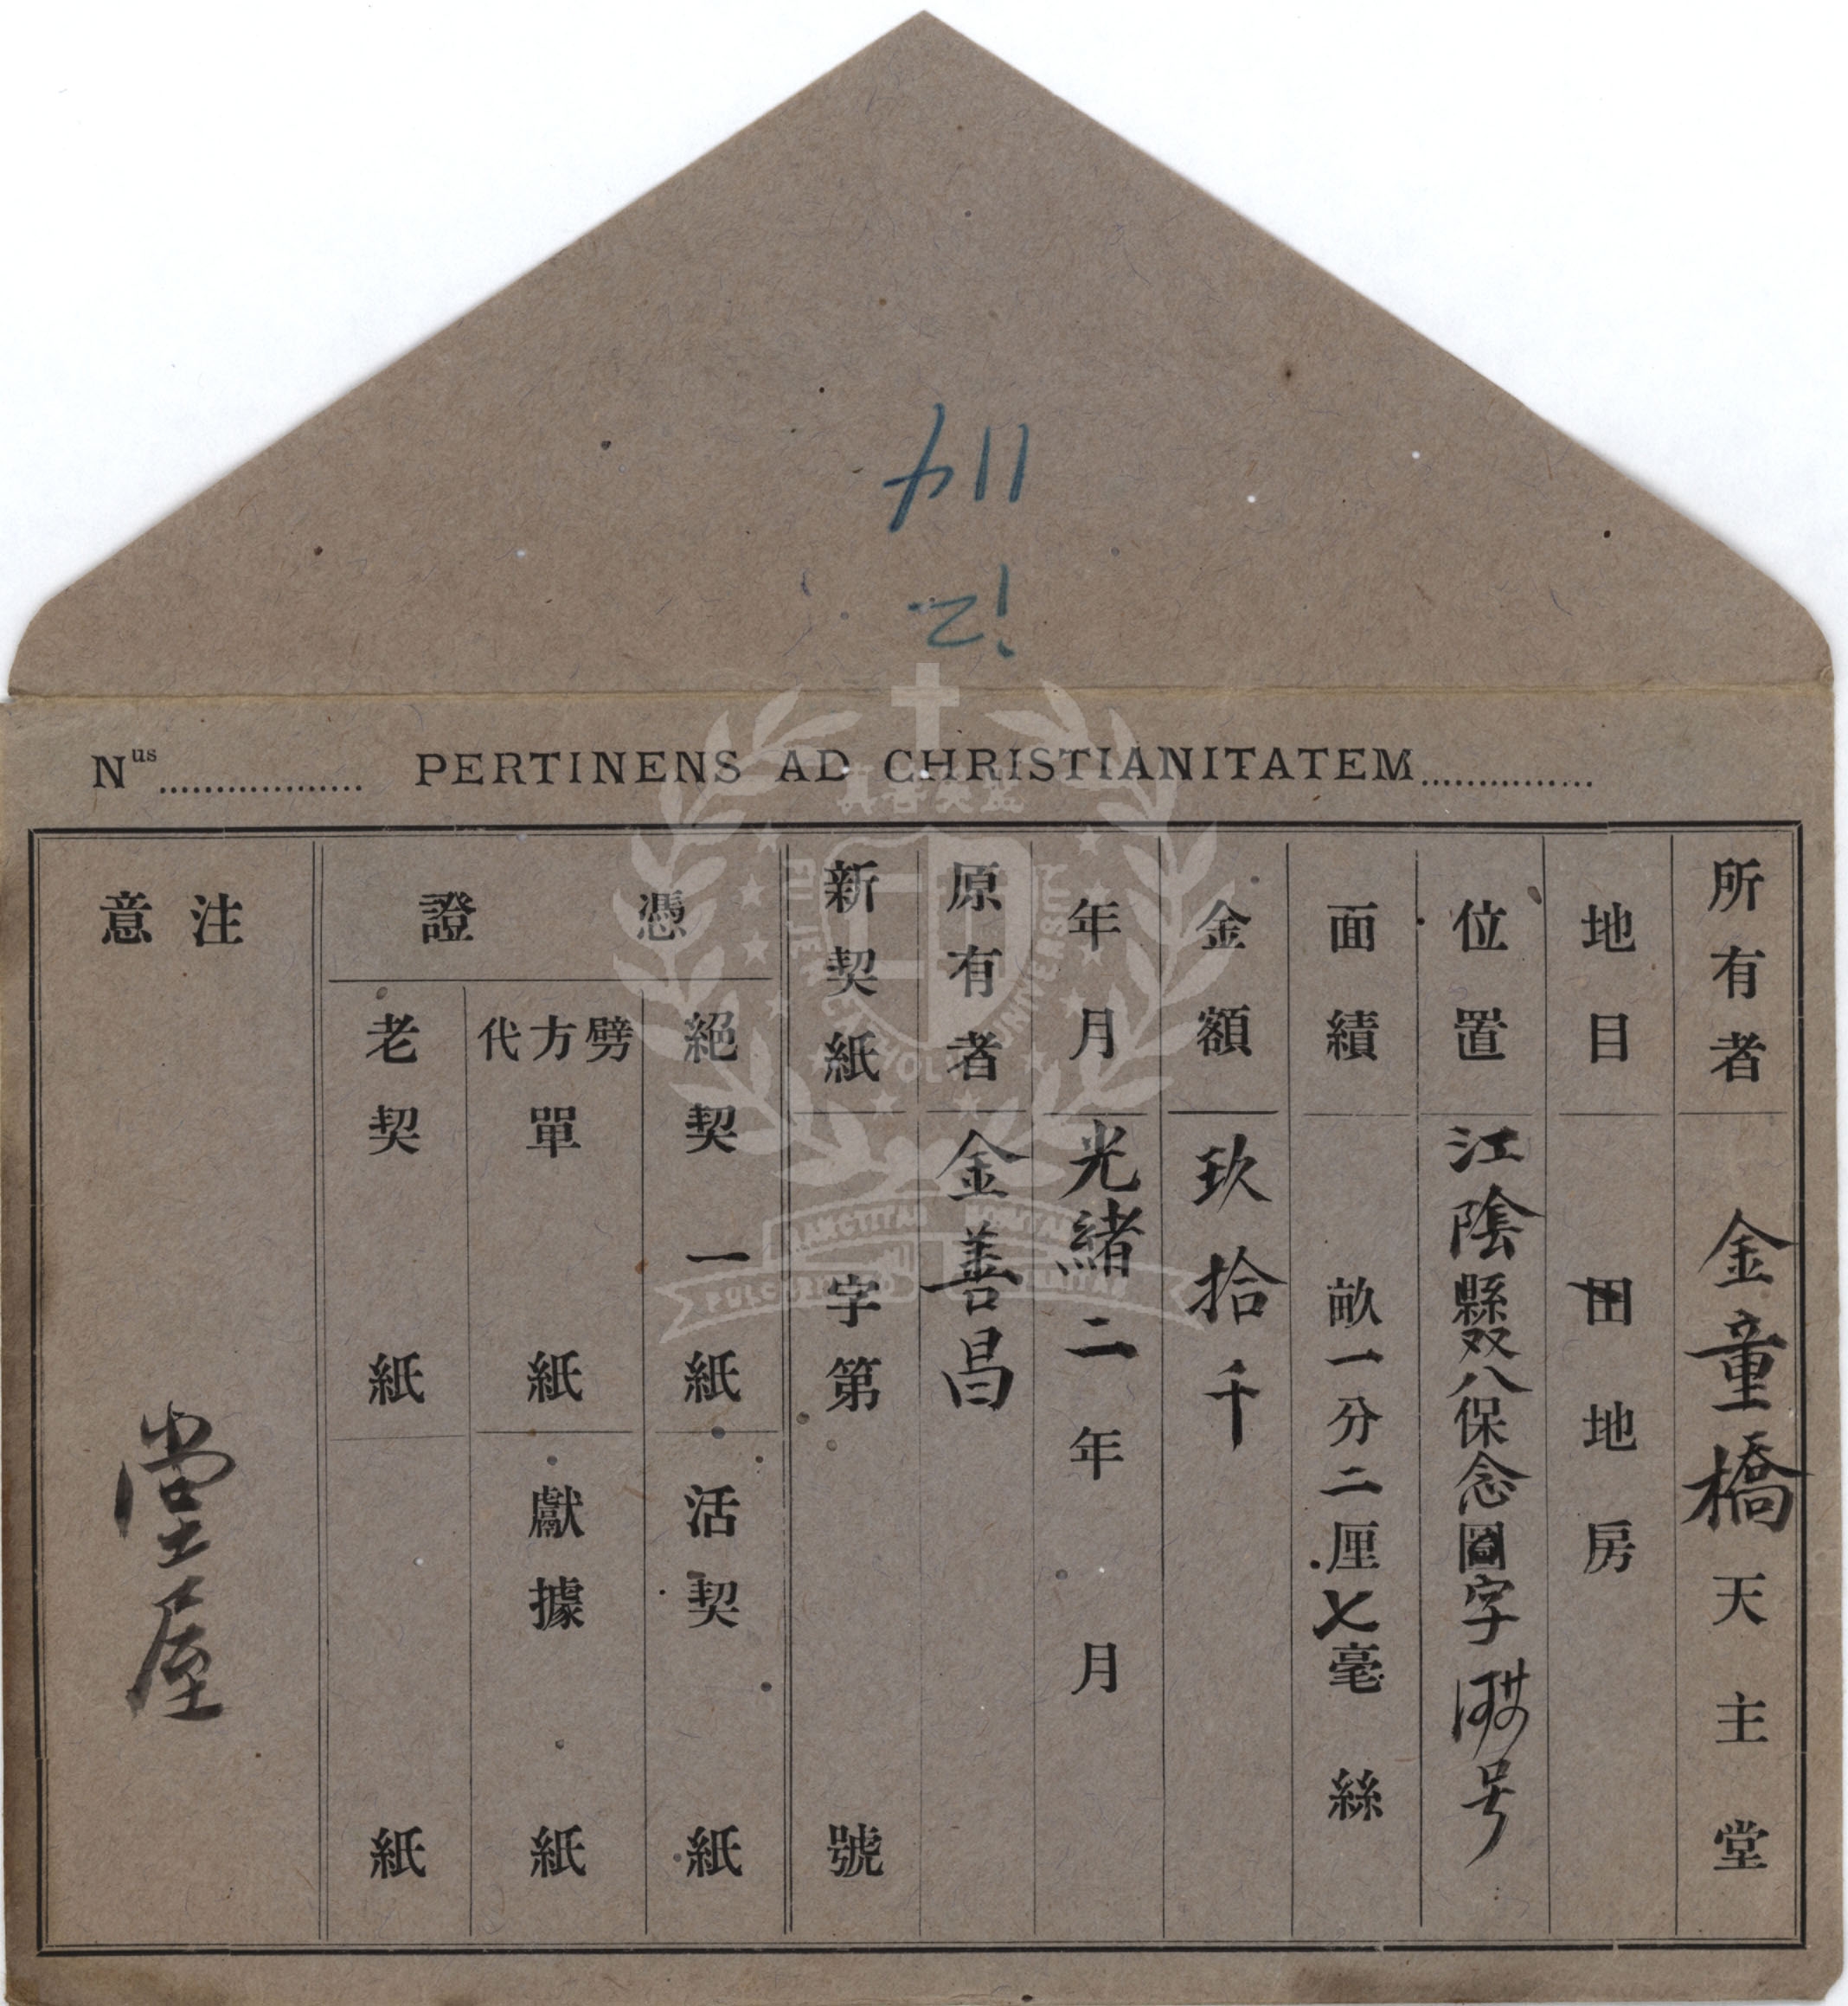 114
12
Nus.................. PERTINENS AD CHRISTIANITATEM...............
所有者 金童橋天主堂
地目 田地房
位置 江陰縣双八保念圖字 号
面績 畝一分二厘七毫絲
金額 玖拾千
年月 光緒二年 月
原有者 金善昌
新契紙 字第 號
憑證
絕契 一紙 活契 紙
劈方代單 紙 獻據 紙
老契 紙 紙
注意 堂屋